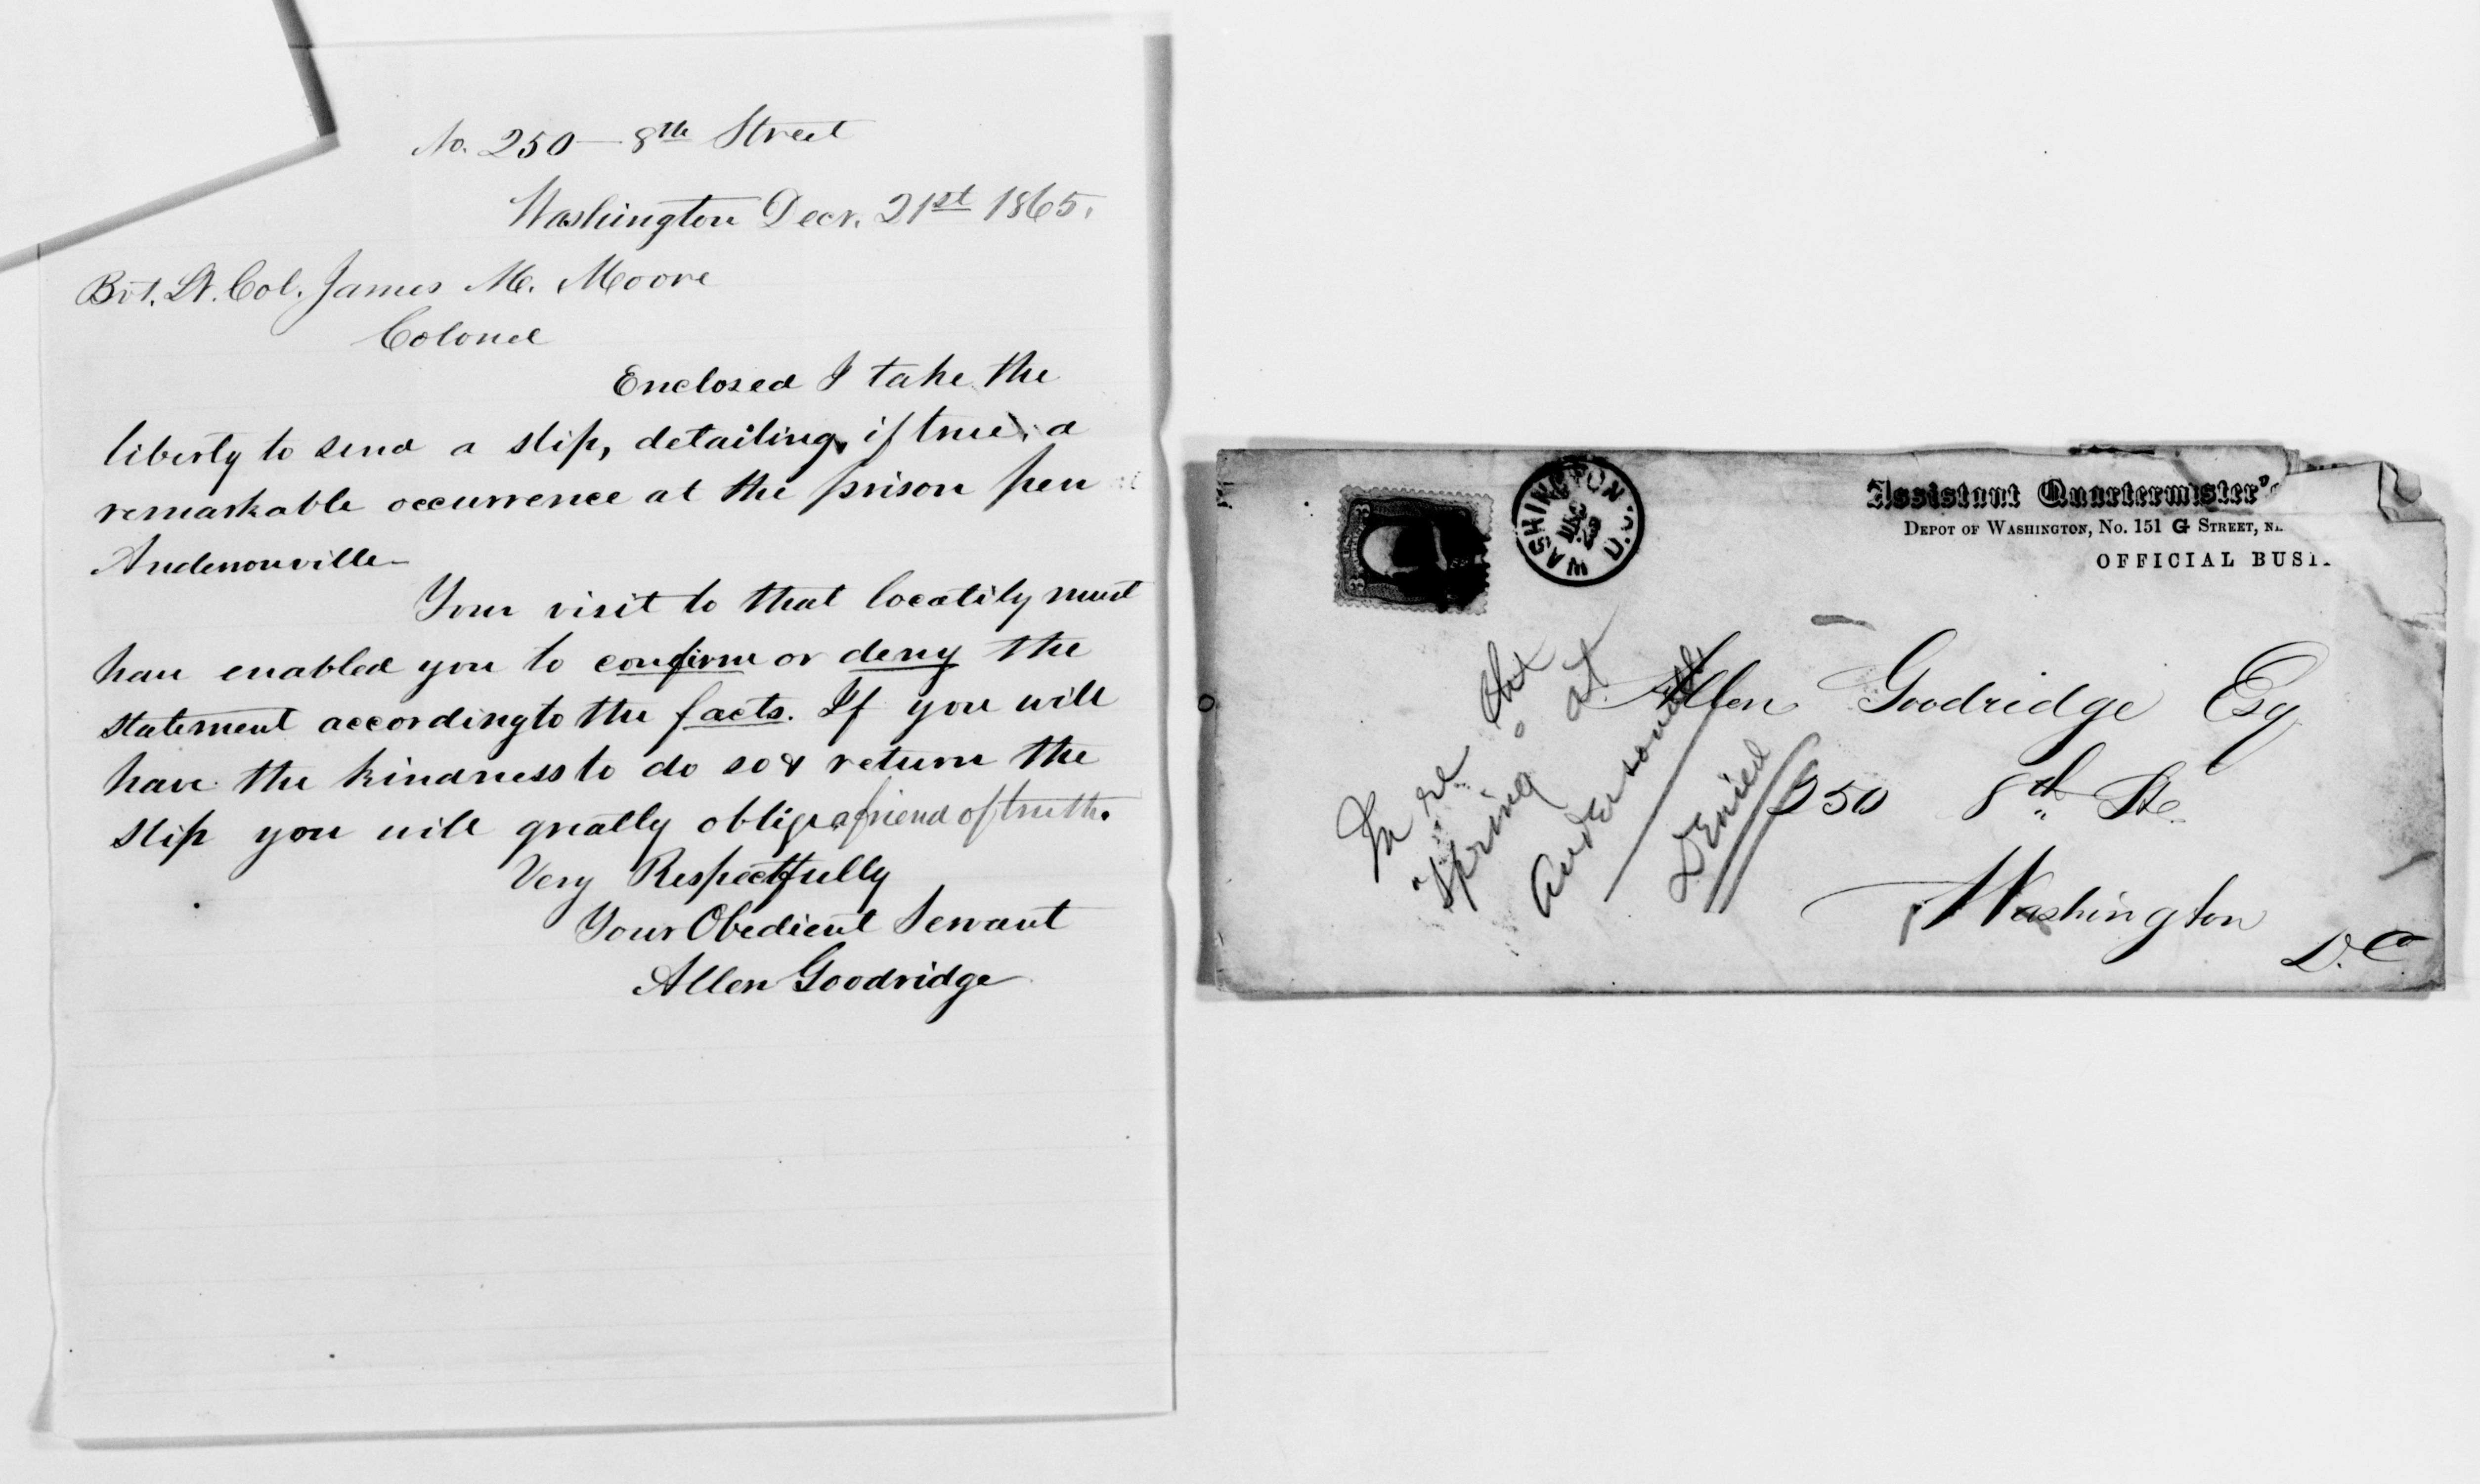 No. 250 — 8th Street
Washington Decr. 21st 1865.
Bvt. Lt. Col. James M. Moore
Colonel
Enclosed I take the
liberty to send a slip, detailing, if true, a
remarkable occurrence at the prison pen at
Andersonville
Your visit to that locality must
have enabled you to confirm or deny the
statement according to the facts. If you will
have the kindness to do so & return the
slip you will greatly oblige a friend of truth.
Very Respectfully
Your Obedient Servant
Allen Goodridge
Assistant Quartermaster's
Depot of Washington, No. 151 G Street,
OFFICIAL
WASHINGTON D.C.
DEC
23
Allen Goodridge Esq
250 8th St.
Washington
D.C.
In re the
"Spring" at
Andersonville
Denied